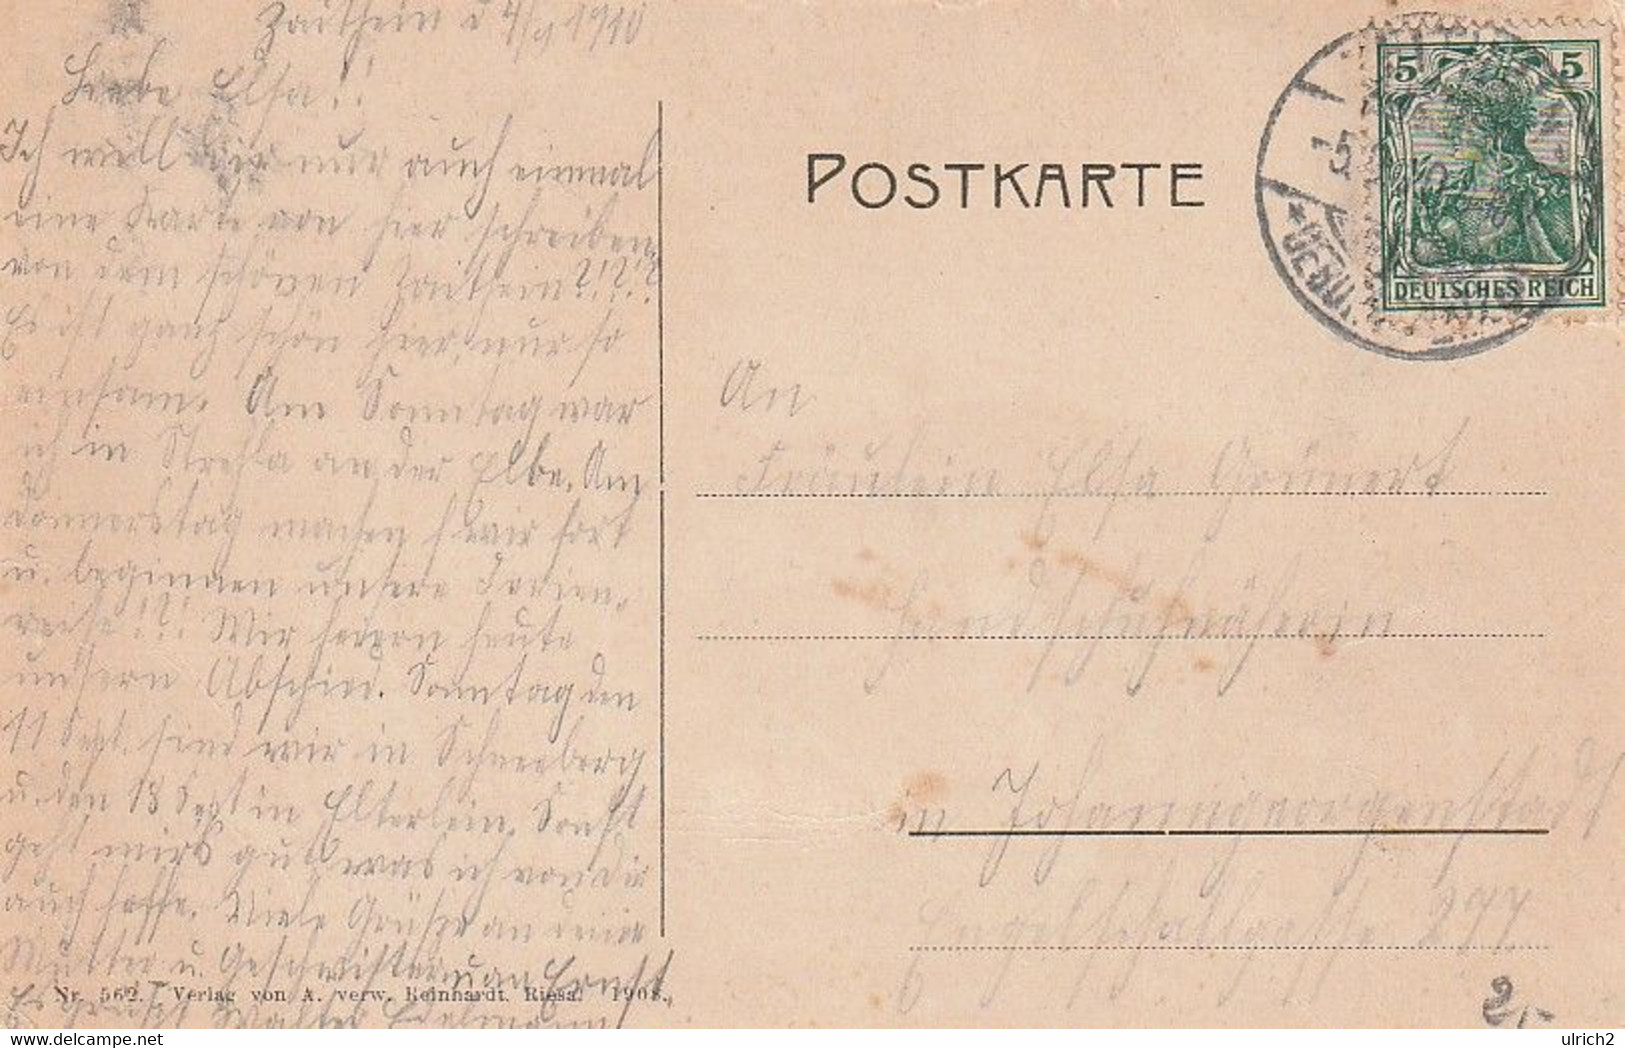 Zeithein d 4/9 1910
Liebe Elsa!!
Ich will dir nur auch einmal
eine Karte von hier schreiben,
von dem schönen Zeithein?!?!?
Es ist ganz schön hier, nur so
einsam. Am Sonntag war
ich in Strehla an der Elbe. Am
Donnerstag machen wir fort
u. beginnen unsere Ferien-
reise!!! Wir feiern heute
unsern Abschied. Sonntag den
11 Sept. sind wir in Schneeberg
u. den 18 Sept in Elterlein. Sonst
geht mirs gut was ich von dir
auch hoffe. Viele Grüße an deine
Mutter u. Geschwister u an Ernst
Es grüßt Walter Edelmann
Nr. 562. Verlag von A. verw. Reinhardt. Riesa. 1908.
POSTKARTE
5 5
DEUTSCHES REICH
An
Fräulein Elsa Grünert
Handschuhnäherin
in Johanngeorgenstadt
277
2,-
ulrich2